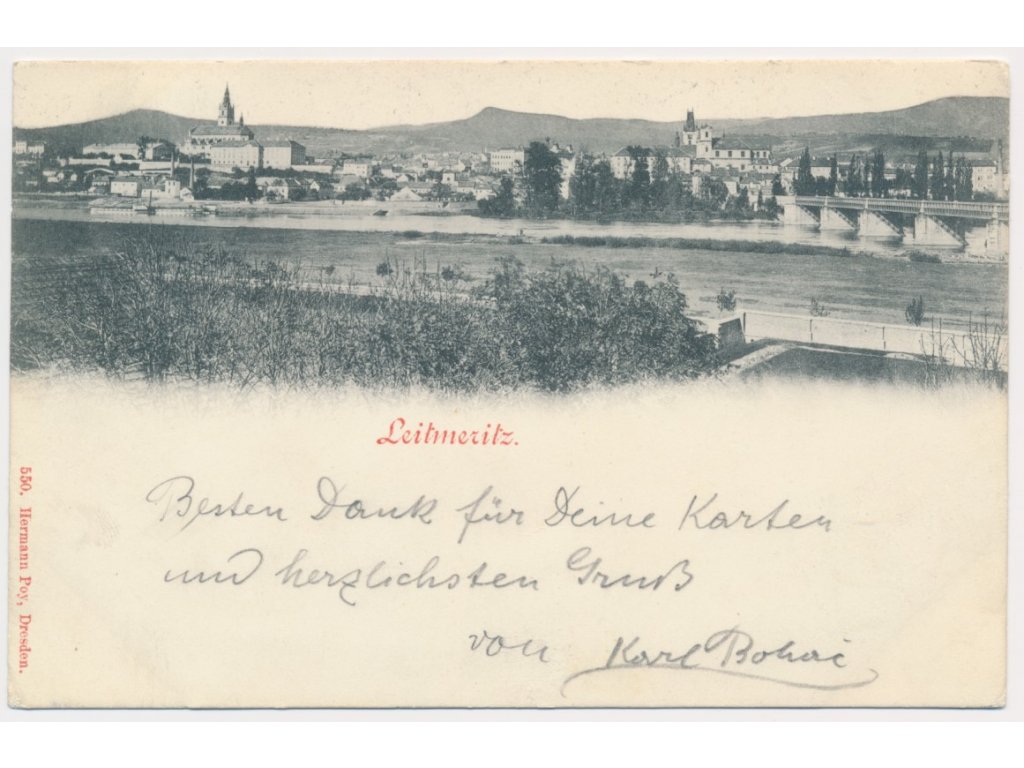 Leitmeritz.
Besten Dank für Deine Karten
und herzlichsten Gruß
von Karl Bohač
550. Hermann Poy, Dresden.